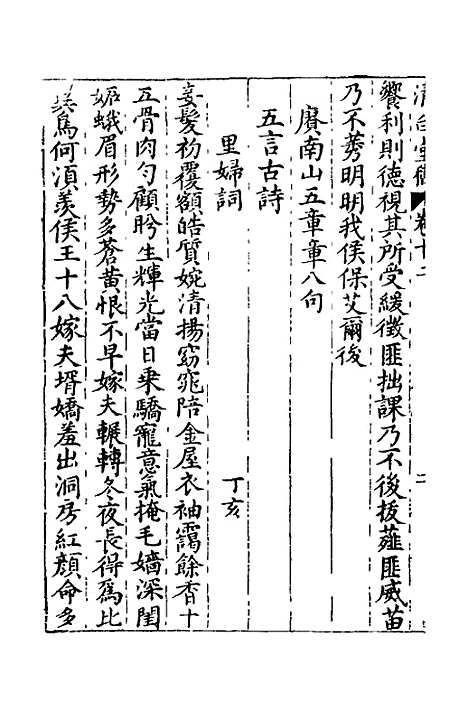 卷十二 二
饗利則德視其所受緩徵匪拙課乃不後拔薤匪威苗
乃不莠明明我侯保艾爾後
賡南山五章章八句
五言古詩
里婦詞 丁亥
妾髮初覆額皓質婉清揚窈窕陪金屋衣袖靄餘香十
五骨肉勻顧盻生輝光當日乗驕寵意氣掩毛嬙深閨
妬蛾眉形勢多蒼黄恨不早嫁夫輾轉冬夜長得爲比
翼鳥何湏羡侯王十八嫁夫壻嬌羞出洞房紅顔命多